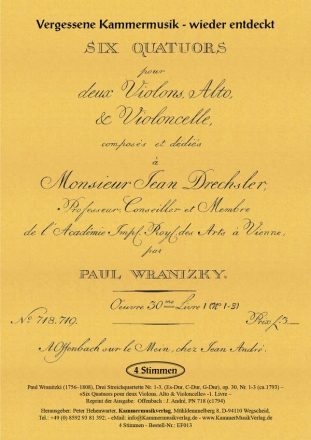 Vergessene Kammermusik - wieder entdeckt
SIX QUATUORS
pour
deux Violons, Alto,
& Violoncelle,
composés et dediés
à
Monsieur Jean Drechsler,
Professeur, Conseillor et Membre
de l'Académie Impl. Royl. des Arts à Vienne,
par
PAUL WRANIZKY.
Oeuvre 30me Livre I (No 1-3)
No. 718.719.
Prix f3
A Offenbach sur le Mein, chez Jean André.
4 Stimmen
Paul Wranitzki (1756-1808), Drei Streichquartette Nr. 1-3, (Es-Dur, C-Dur, G-Dur), op. 30, Nr. 1-3 (ca.1793) –
«Six Quatuors pour deux Violons, Alto & Violoncelle» - I. Livre –
Reprint der Ausgabe: Offenbach : J. André, PN 718 (c1794)
Herausgeber: Peter Hehenwarter, Kammermusikverlag, Mühldemmelberg 8, D-94110 Wegscheid,
Tel. +49 (0) 8592 93 81 392, - eMail: info@Kammermusikverlag.de - www.KammerMusikVerlag.de
4 Stimmen - Bestell-Nr.: EF013